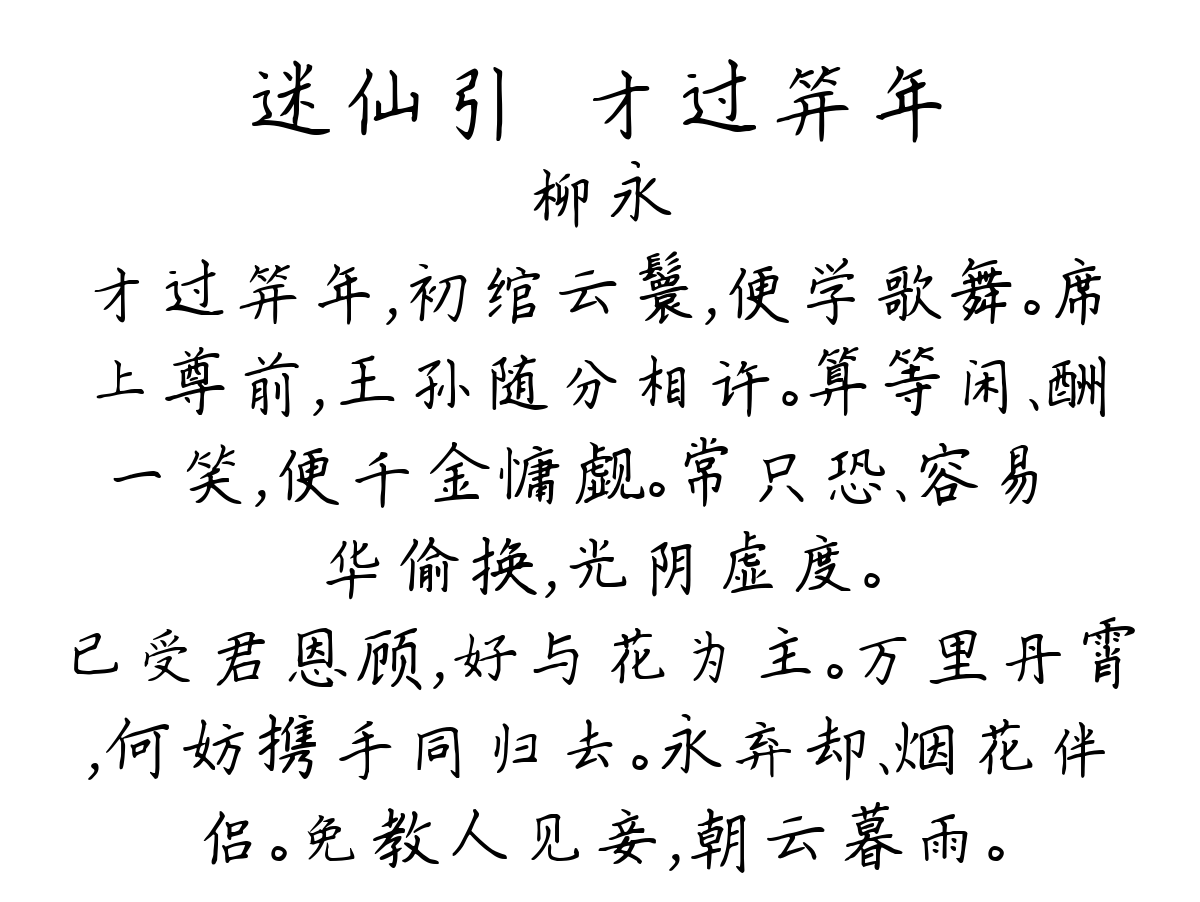 迷仙引 才过笄年
柳永
才过笄年,初绾云鬟,便学歌舞。席
上尊前,王孙随分相许。算等闲、酬
一笑,便千金慵觑。常只恐、容易
华偷换,光阴虚度。
已受君恩顾,好与花为主。万里丹霄
,何妨携手同归去。永弃却、烟花伴
侣。免教人见妾,朝云暮雨。